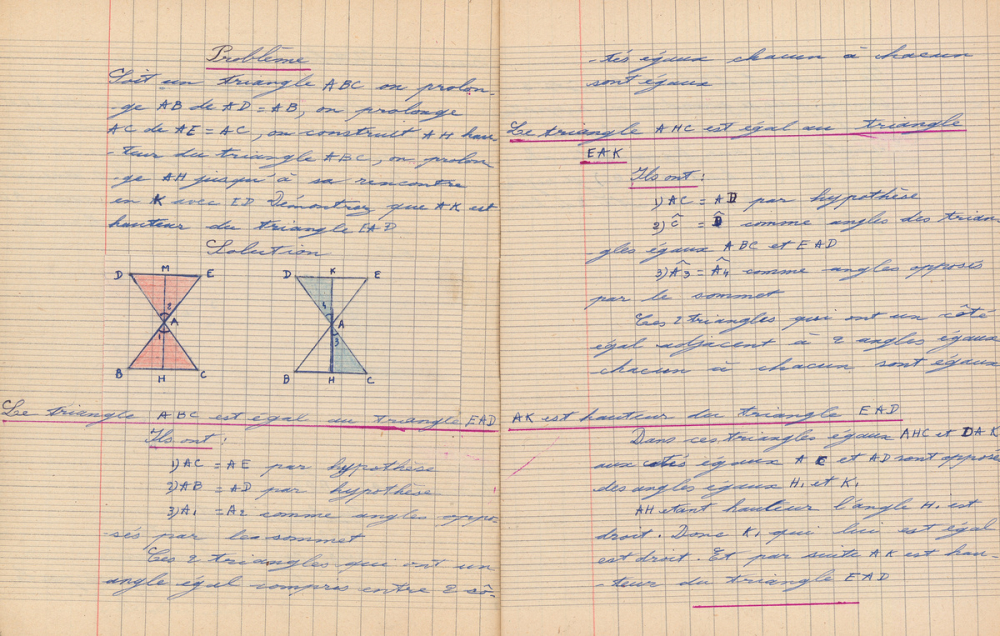 Problème
Soit un triangle ABC on prolon-
-ge AB de AD = AB, on prolonge
AC de AE = AC, on construit AH hau
-teur du triangle ABC, on prolon
-ge AH jusqu'à sa rencontre
en K avec ED Démontrez que AK est
hauteur du triangle EAD
Solution
D M E
2
A
1
B H C
D K E
4
A
3
B H C
Le triangle ABC est égal au triangle EAD
Ils ont :
1) AC = AE par hypothèse
2) AB = AD par hypothèse
3) A1 = A2 comme angles oppo-
-sés par les sommet
Ces 2 triangles qui ont un
angle égal compris entre 2 cô-
-tés égaux chacun à chacun
sont égaux
Le triangle AHC est égal au triangle
EAK
Ils ont :
1) AC = AD par hypothèse
2) Ĉ = D̂ comme angles des trian
gles égaux ABC et EAD
3) Â3 = Â4 comme angles opposés
par le sommet
Ces 2 triangles qui ont un côté
égal adjacent à 2 angles égaux
chacun à chacun sont égaux
AK est hauteur du triangle EAD
Dans ces triangles égaux AHC et DAK
aux cotés égaux AC et AD sont opposés
des angles égaux H1 et K1
AH etant hauteur l'angle H1 est
droit. Donc K1 qui lui est égal
est droit. Et par suite AK est hau-
-teur du triangle EAD